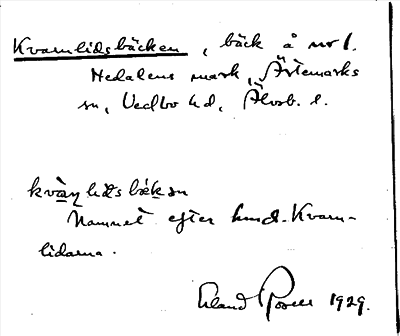 Kvarnlidsbäcken, bäck å nr 1.
Nedalens mark, Ärtemarks
sn, Vedbo hd, Älvsb. l.
lids
Namnet efter Kvarn-
lidarna.
Erland Rosell 1929.